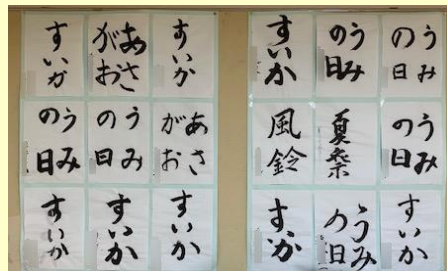 すいか
あさ
がお
すいか
うみ
の日
うみ
の日
あさ
がお
すいか
すいか
すいか
すいか
うみ
の日
うみ
の日
風鈴
夏祭
うみ
の日
すいか
うみ
の日
すいか